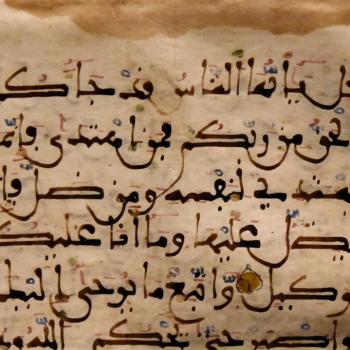 قل يايها الناس قد جاكم
الحق من ربكم فمن اهتدى فإنما
يهتدي لنفسه ومن ضل فإ
يضل عليها وما أنا عليكم
وكيل واتبع ما يوحى إليك
واصبر حتى يحكم الله وهو